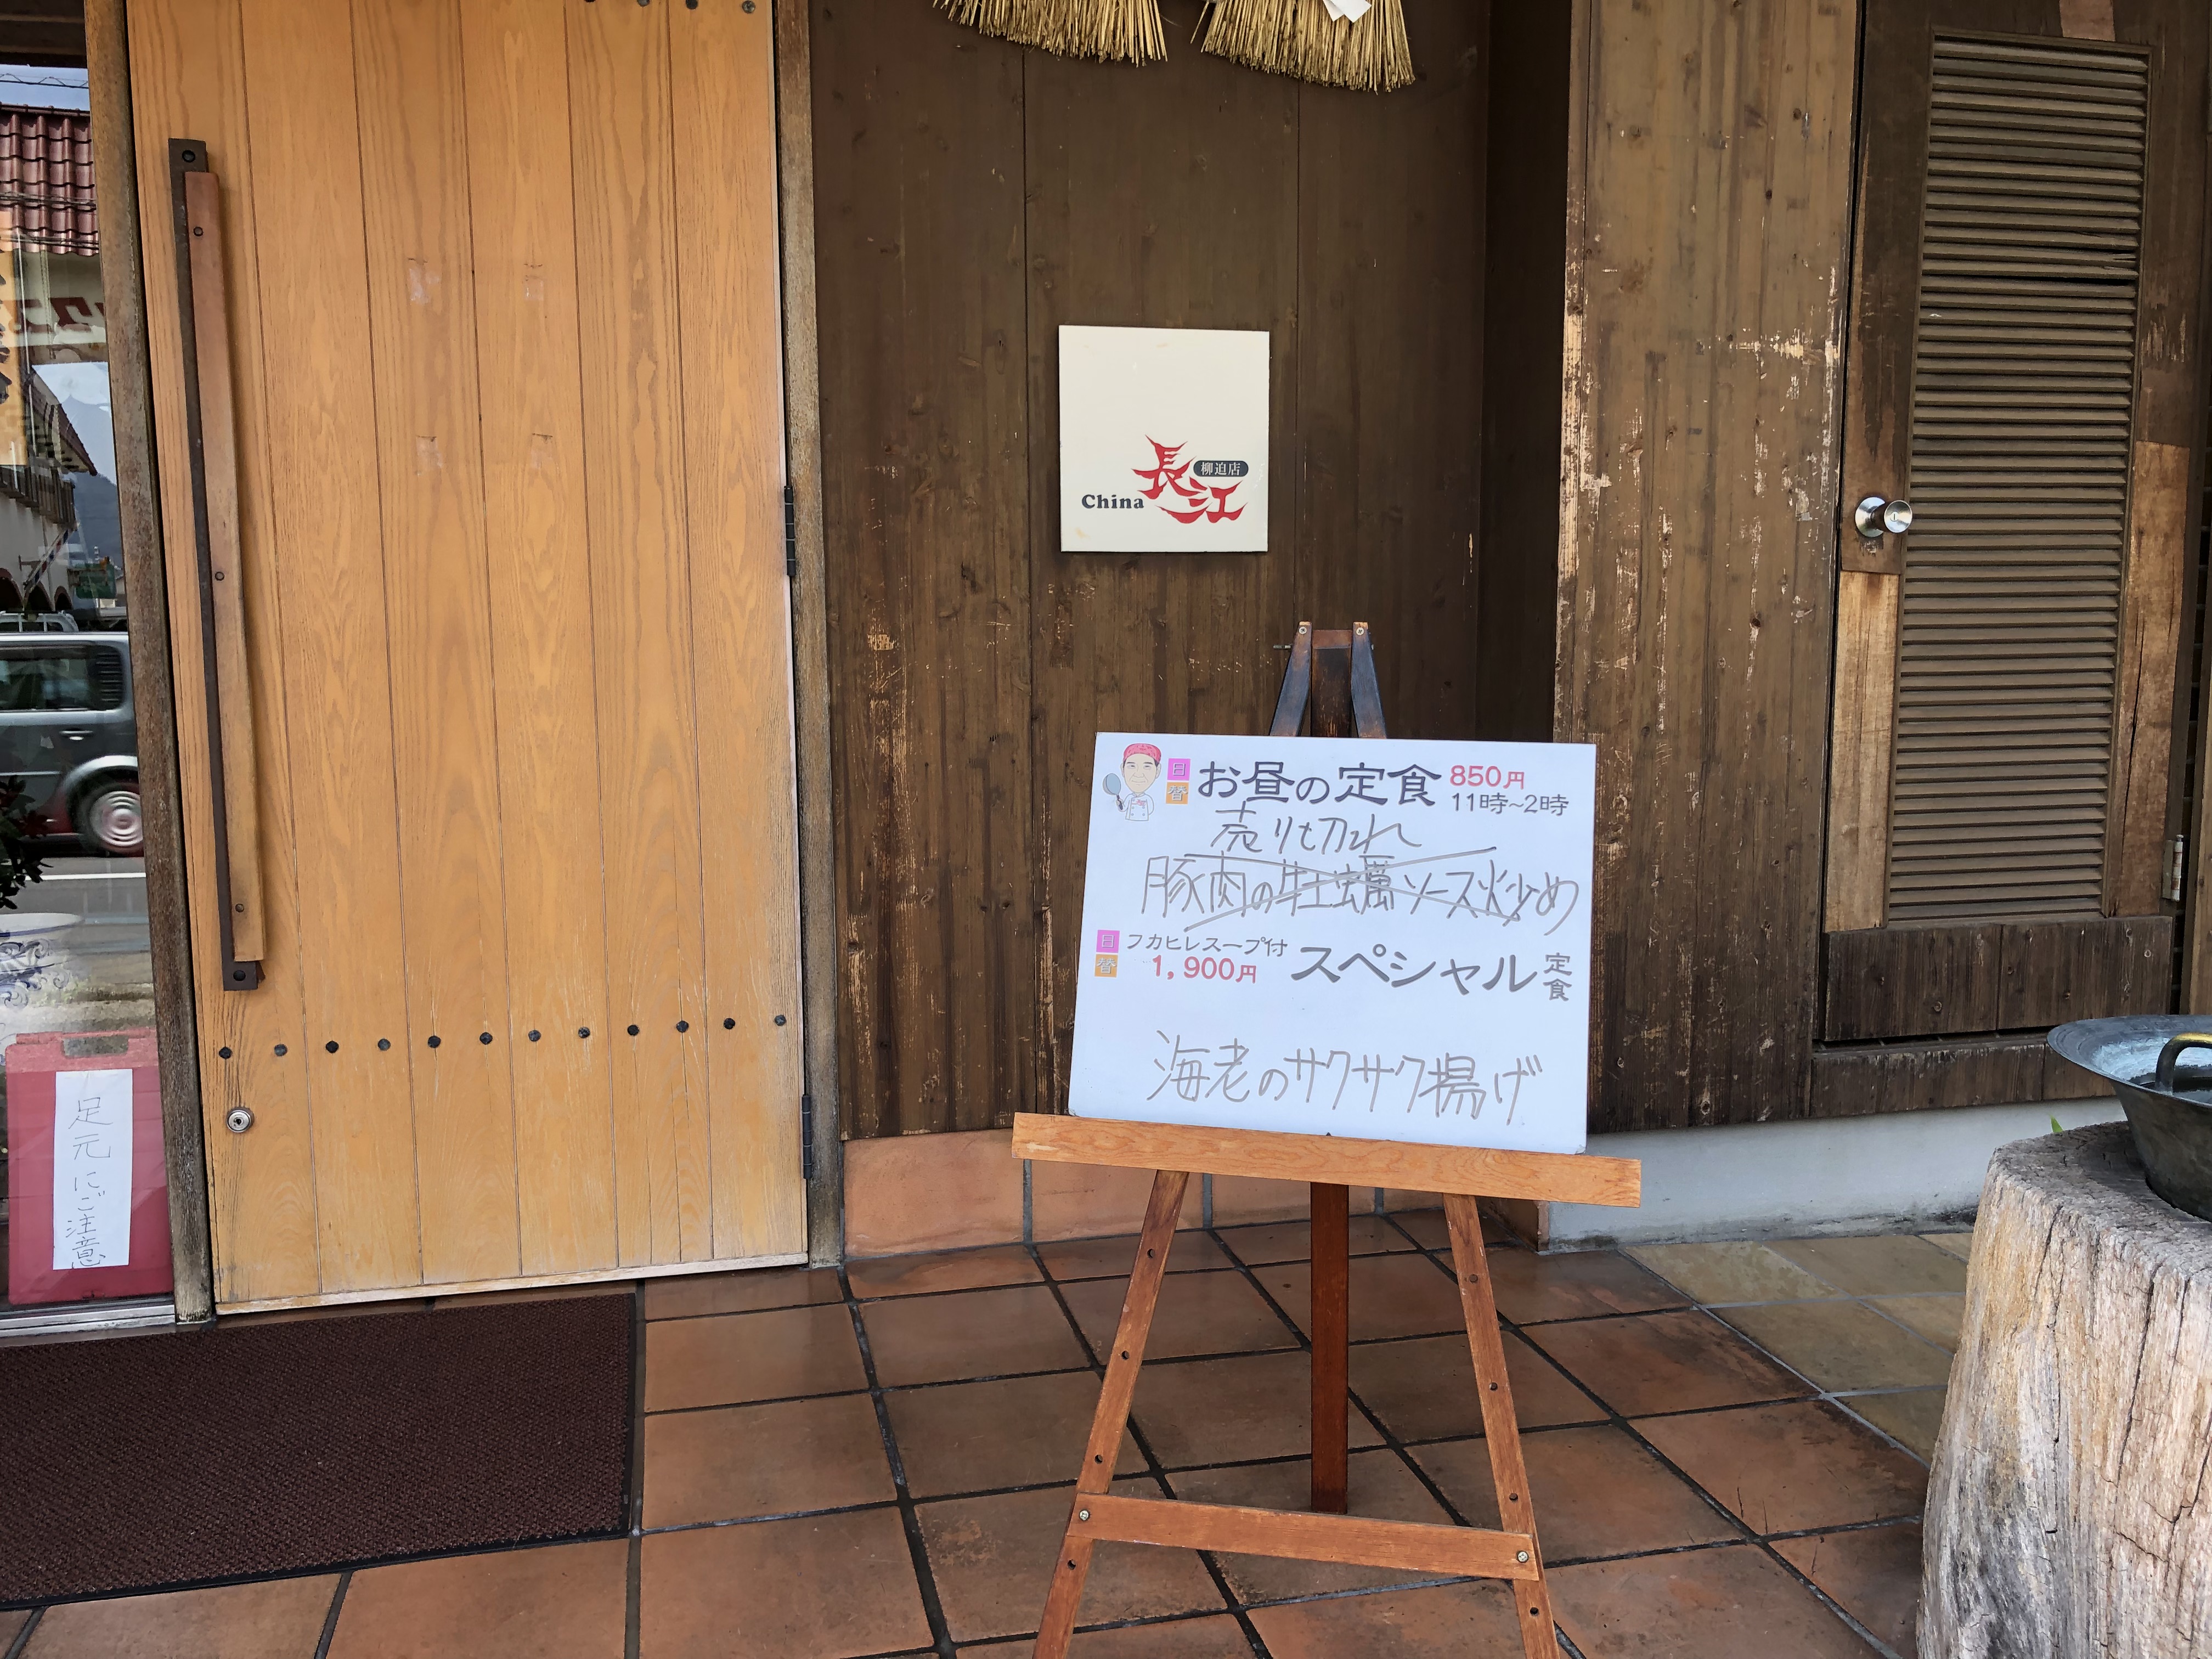 長江
柳迫店
China
日替 お昼の定食 850円
11時~2時
売り切れ
豚肉の牡蠣ソース炒め
日替 フカヒレスープ付
1,900円
スペシャル定食
海老のサクサク揚げ
足元にご注意